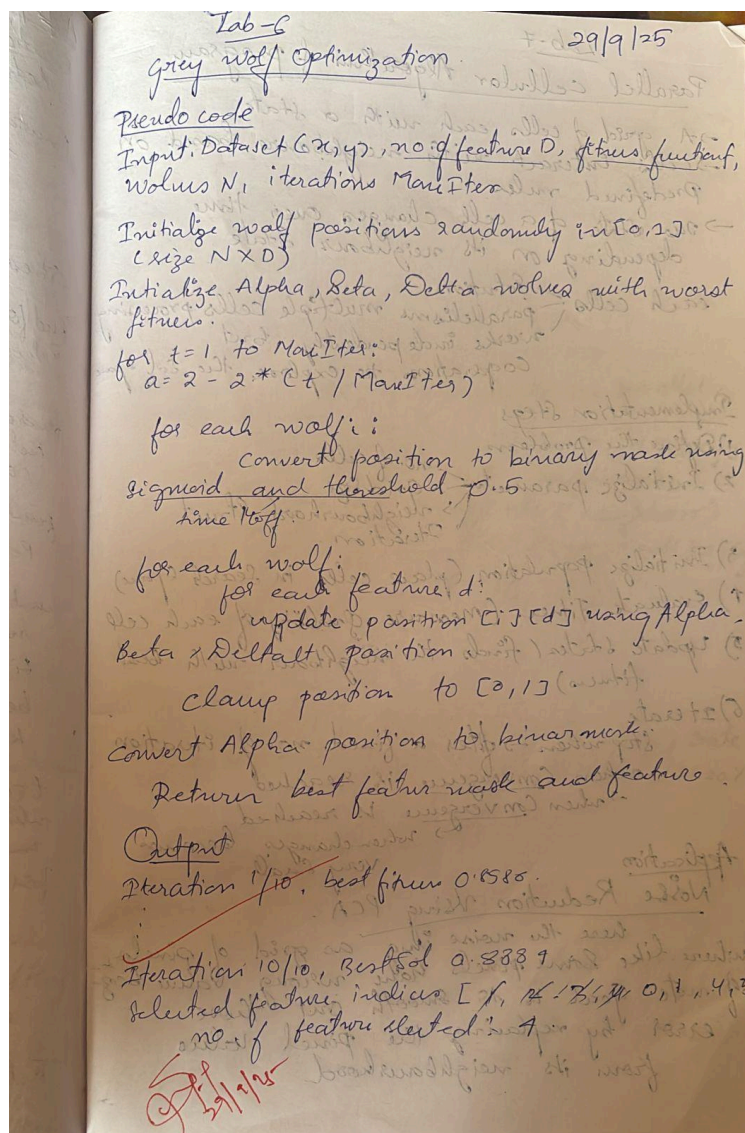 Lab-6
29/9/25
Grey Wolf Optimization
Pseudo code
Input: Dataset (x, y), no. of feature D, fitness function f,
wolves N, iterations MaxIter
Initialize wolf positions randomly in [0,1]
(size N X D)
Intialize Alpha, Beta, Delta wolves with worst
fitness.
for t = 1 to MaxIter:
a = 2 - 2 * (t / MaxIter)
for each wolf i:
Convert position to binary mask using
sigmoid and threshold 0.5
for each wolf:
for each feature d:
update position [i][d] using Alpha,
Beta position
clamp position to [0,1]
Convert Alpha position to binar mask.
Return best featur mask and feature.
Output
Iteration 1/10, best fitness 0.8586.
Iteration 10/10, Best Sol 0.8889
Selected feature indices [ 0, 1, 4,
no. of feature slected : 4
29/9/25